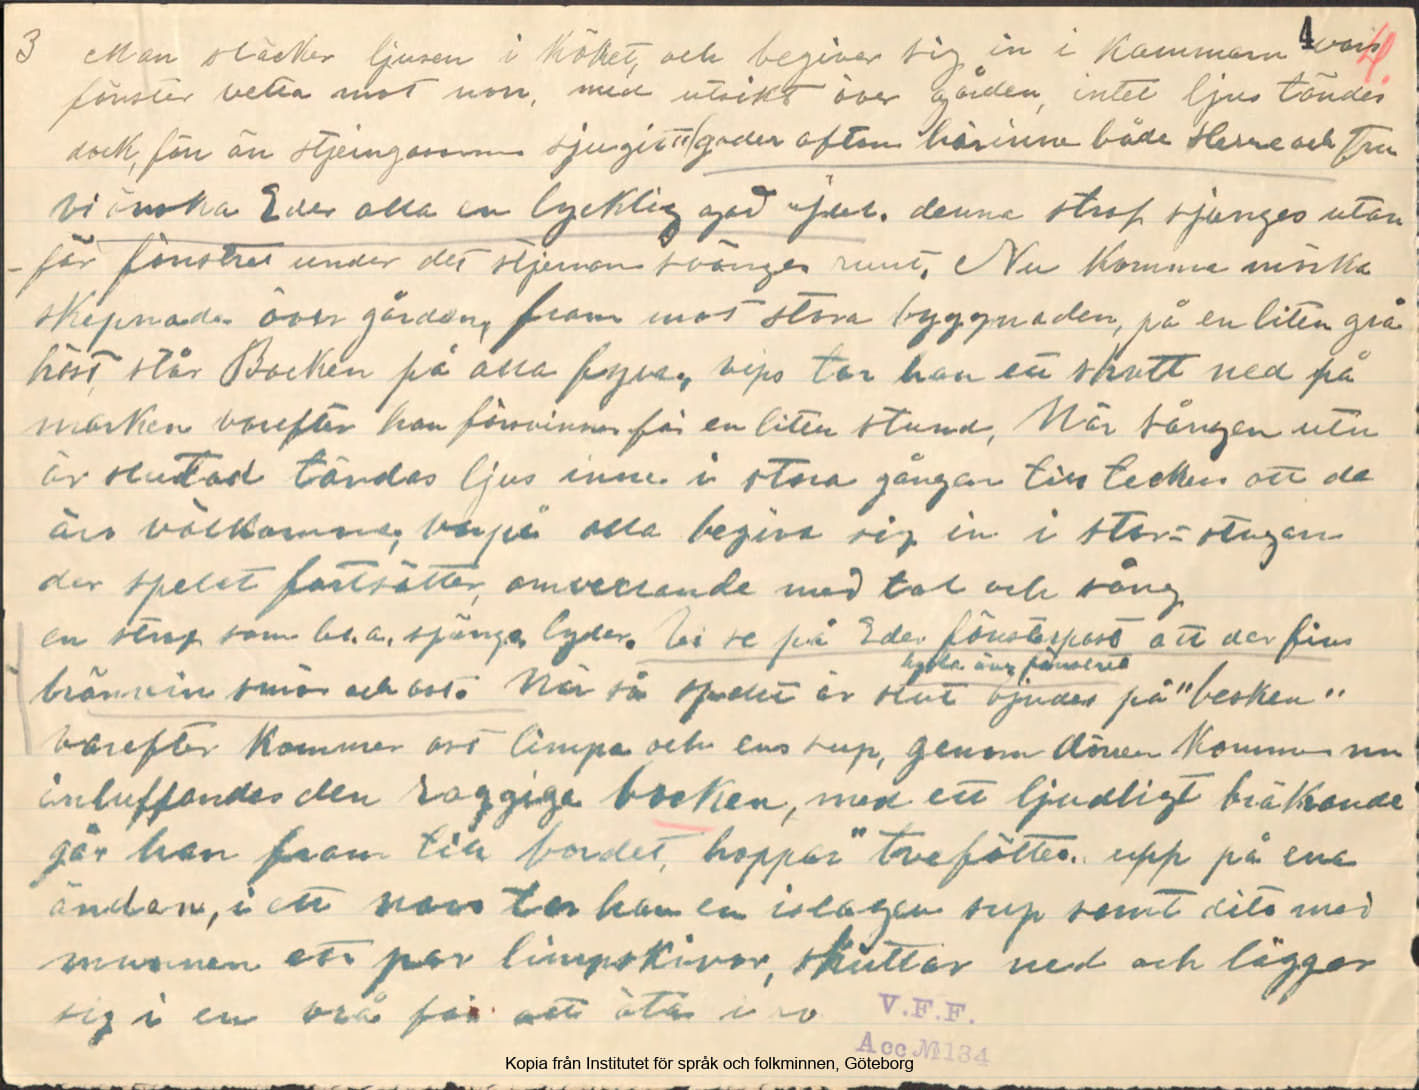 3 Man släcker ljusen i köket, och begiver sig in i kammarn vars 4 4.
fönster vetta mot norr, med utsikt över gården, intet ljus tändes
dock, för än stjerngossarna sjungit "goder afton härinne både Herre och Fru
vi önska Eder alla en lycklig god Jul. denna strof sjunges utan
-för fönstret under det stjernan svänges runt. Nu komma mörka
skepnader över gården, fram mot stora byggnaden, på en liten grå
häst står Bocken på alla fyra, vips tar han ett skutt ned på
marken varefter han försvinner för en liten stund, När sången ute
är slutad tändas ljus inne i stora gången till tecken att de
äro välkomna, varpå alla begiva sig in i stor-stugan
der spelet fortsätter, omvexlande med tal och sång
en strof som bl.a. sjunges lyder. Vi se på Eder fönsterpost att der fins
kyssa över fönstret
brännvin smör och ost. När så spelet är slut bjudes på "besken"
varefter kommer ost limpa och ens sup, genom dörren kommer nu
inluffandes den raggige bocken, med ett ljudligt bräkande
går han fram till bordet, hoppar "tveföttes" upp på ena
ändan, i ett nav tar han en islagen sup samt dito med
munnen ett par limpskivor, skuttar ned och lägger
sig i en vrå för att äta i ro
V.F.F.
Acc № 134
Kopia från Institutet för språk och folkminnen, Göteborg